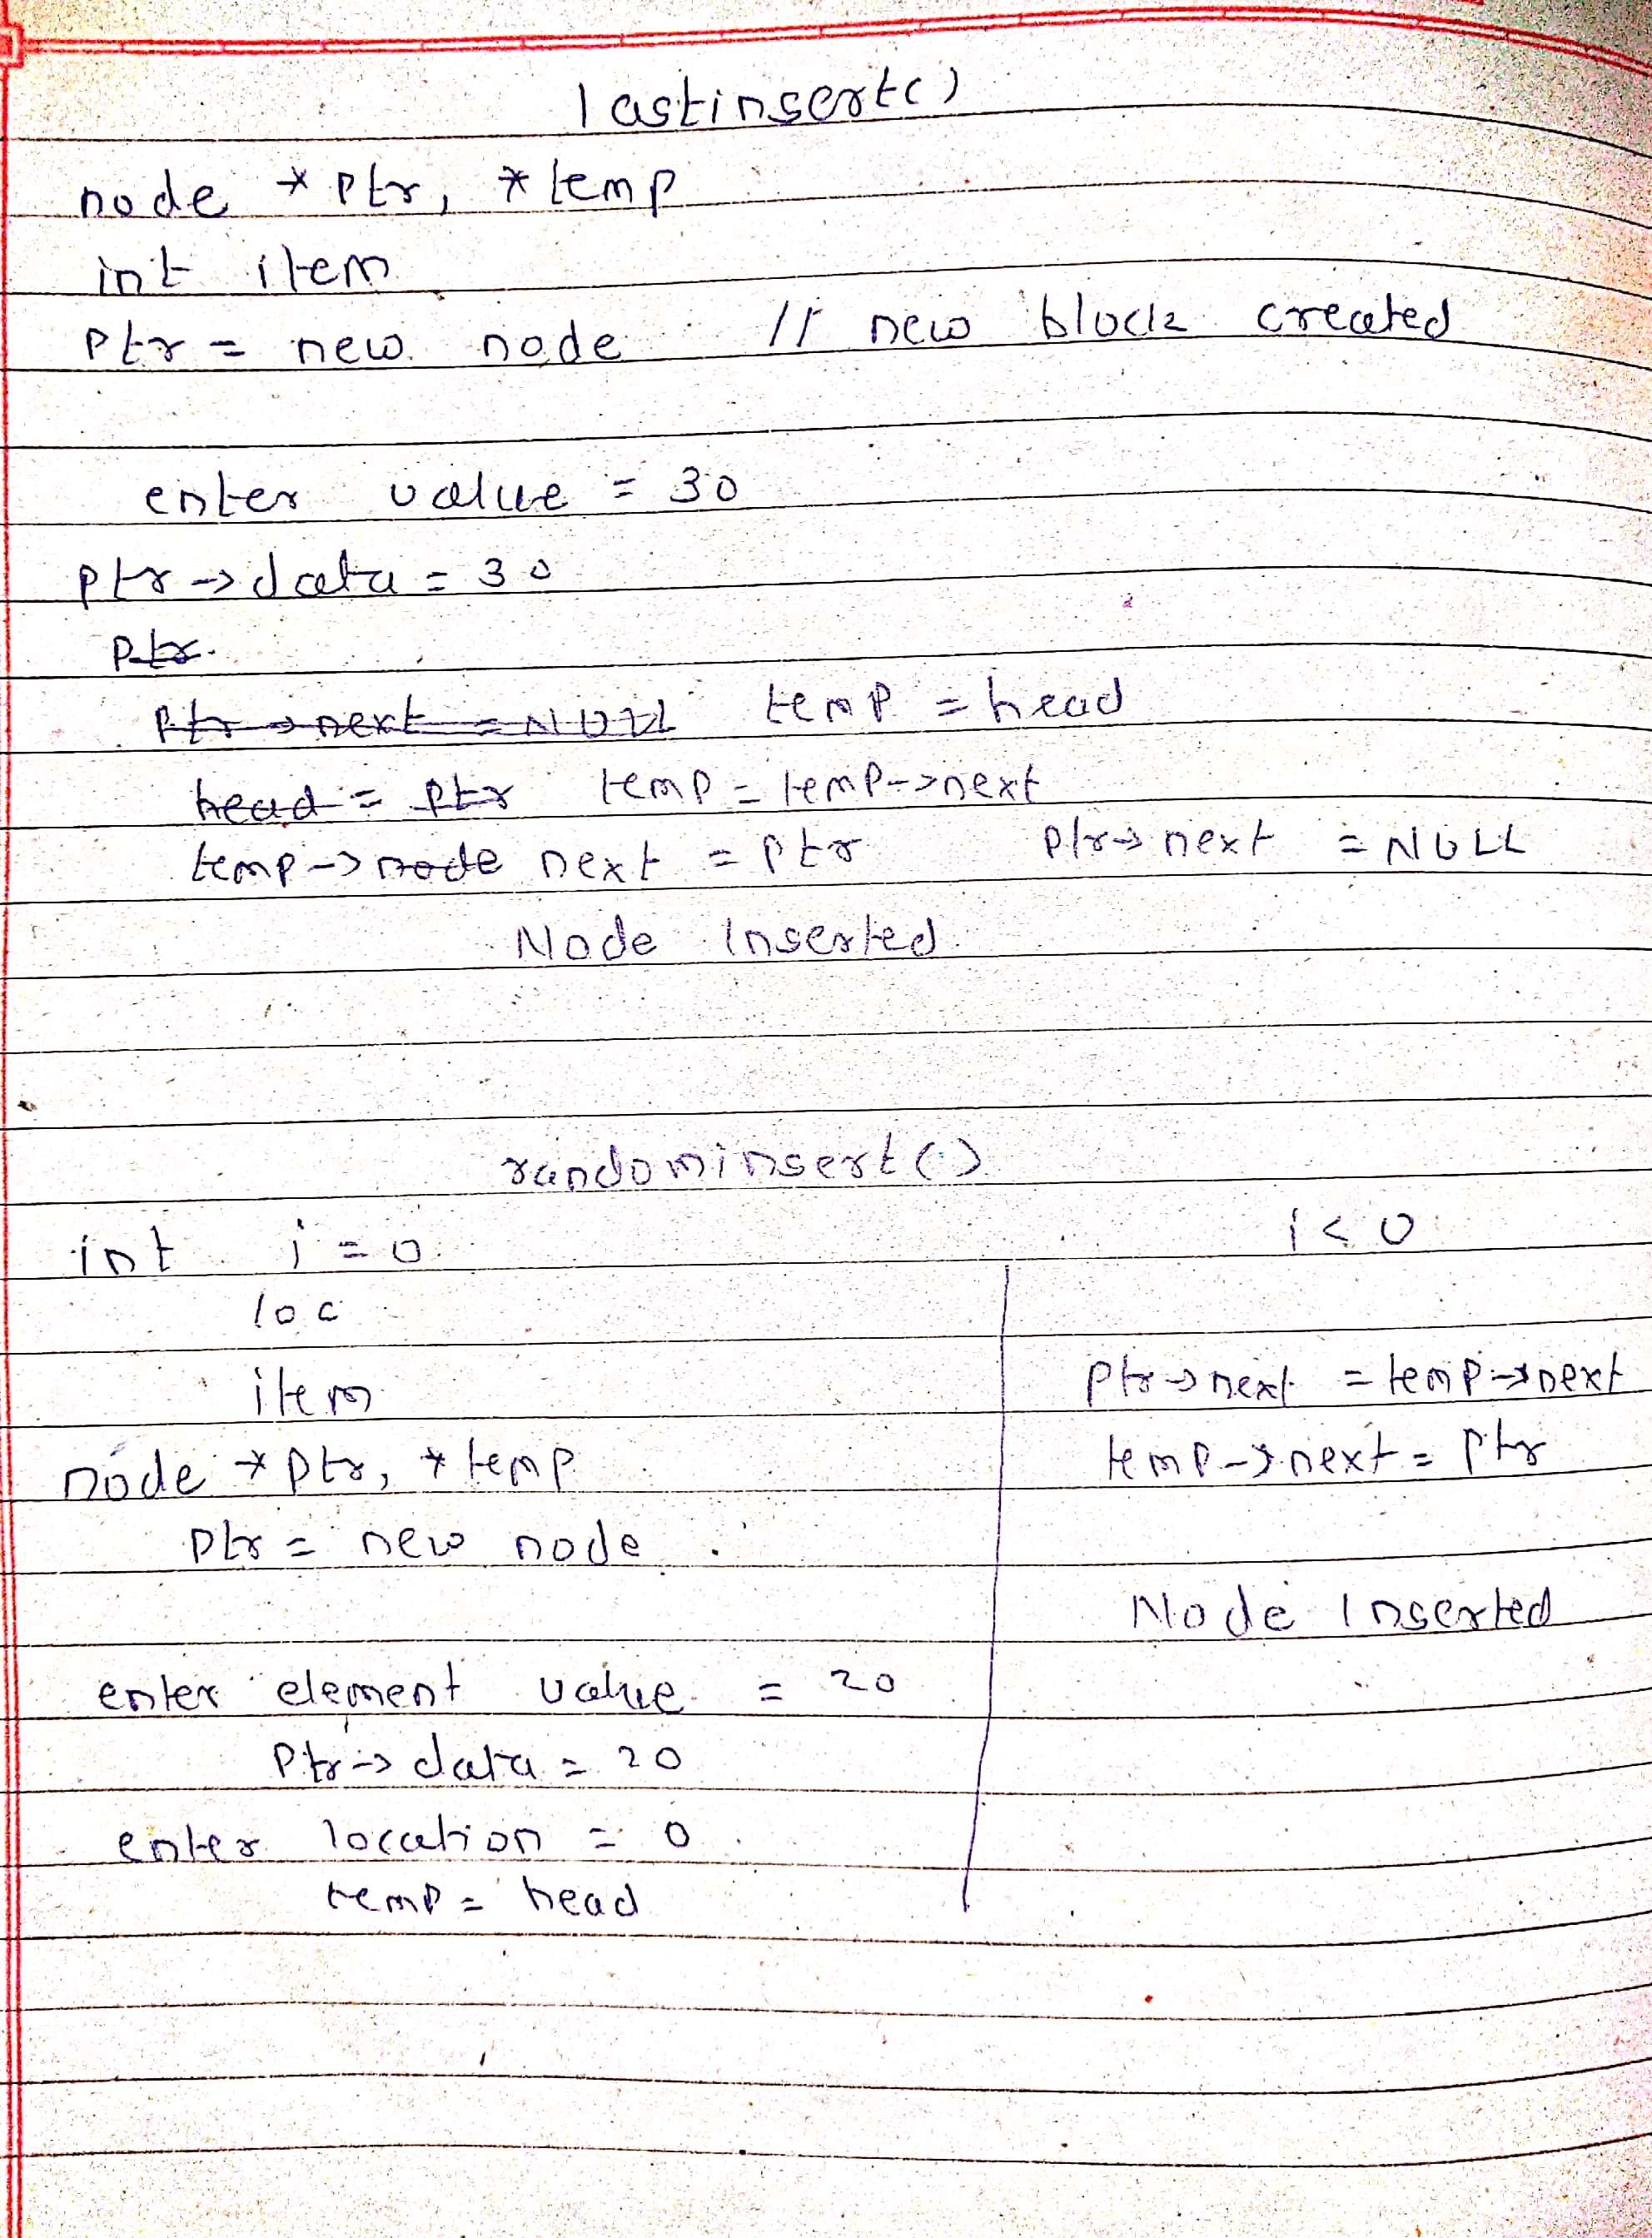 lastinsert()
node *ptr, *temp
int item
ptr = new node // new block created
enter value = 30
ptr->data = 30
ptr.
ptr->next = NULL temp = head
head = ptr temp = temp->next
temp->node next = ptr ptr->next = NULL
Node Inserted
randominsert()
int i = 0
loc
item
node *ptr, *temp
ptr = new node
enter element value = 20
ptr->data = 20
enter location = 0
temp = head
i < 0
ptr->next = temp->next
temp->next = ptr
Node Inserted